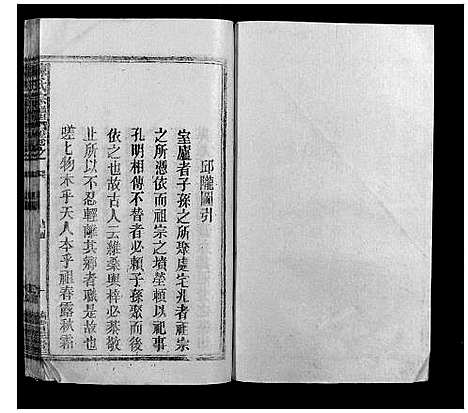 邱隴圖引
室廬者子孫之所聚處宅兆者祖宗
之所憑依而祖宗之墳塋頼以祀事
孔明相傳不替者必頼子孫聚而後
依之也故古人云維桑與梓必恭敬
止所以不忍輕離其鄉者職是故也
嗟乎物本乎天人本乎祖春露秋霜
氏宗譜